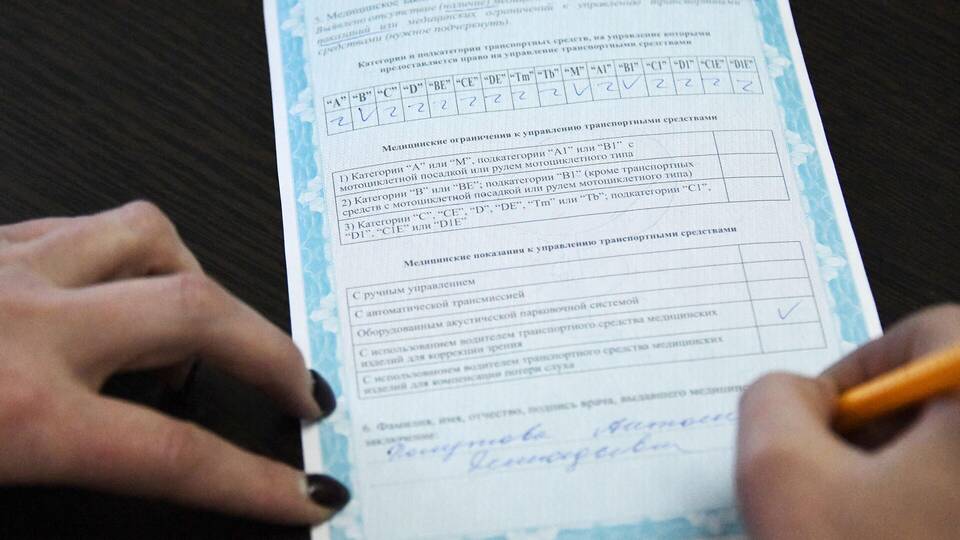 5. Медицинское
Выявлено отсутствие (наличие)
показаний или медицинских ограничений к управлению транспортными
средствами (нужное подчеркнуть).
Категории и подкатегории транспортных средств, на управление которыми
предоставляется право на управление транспортными средствами
“A” “B” “C” “D” “BE” “CE” “DE” “Tm” “Tb” “M” “A1” “B1” “C1” “D1” “C1E” “D1E”
Медицинские ограничения к управлению транспортными средствами
1) Категории “A” или “M”, подкатегории “A1” или “B1” с
мотоциклетной посадкой или рулем мотоциклетного типа
2) Категории “B” или “BE”; подкатегории “B1” (кроме транспортных
средств с мотоциклетной посадкой или рулем мотоциклетного типа)
3) Категории “C”, “CE”, “D”, “DE”, “Tm” или “Tb”; подкатегории “C1”,
“D1”, “C1E” или “D1E”
Медицинские показания к управлению транспортными средствами
С ручным управлением
С автоматической трансмиссией
Оборудованным акустической парковочной системой
С использованием водителем транспортного средства медицинских
изделий для коррекции зрения
С использованием водителем транспортного средства медицинских
изделий для компенсации потери слуха
6. Фамилия, имя, отчество, подпись врача, выдавшего
заключение: